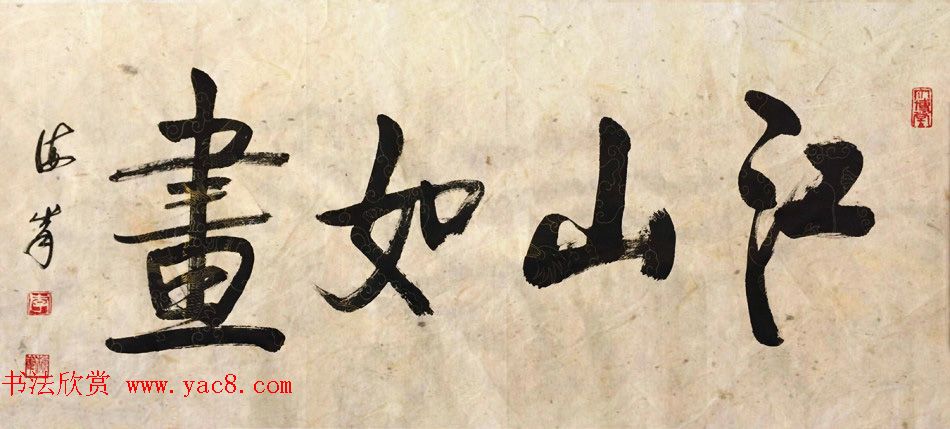 江山如畫
海峯
李
书法欣赏 www.yac8.com